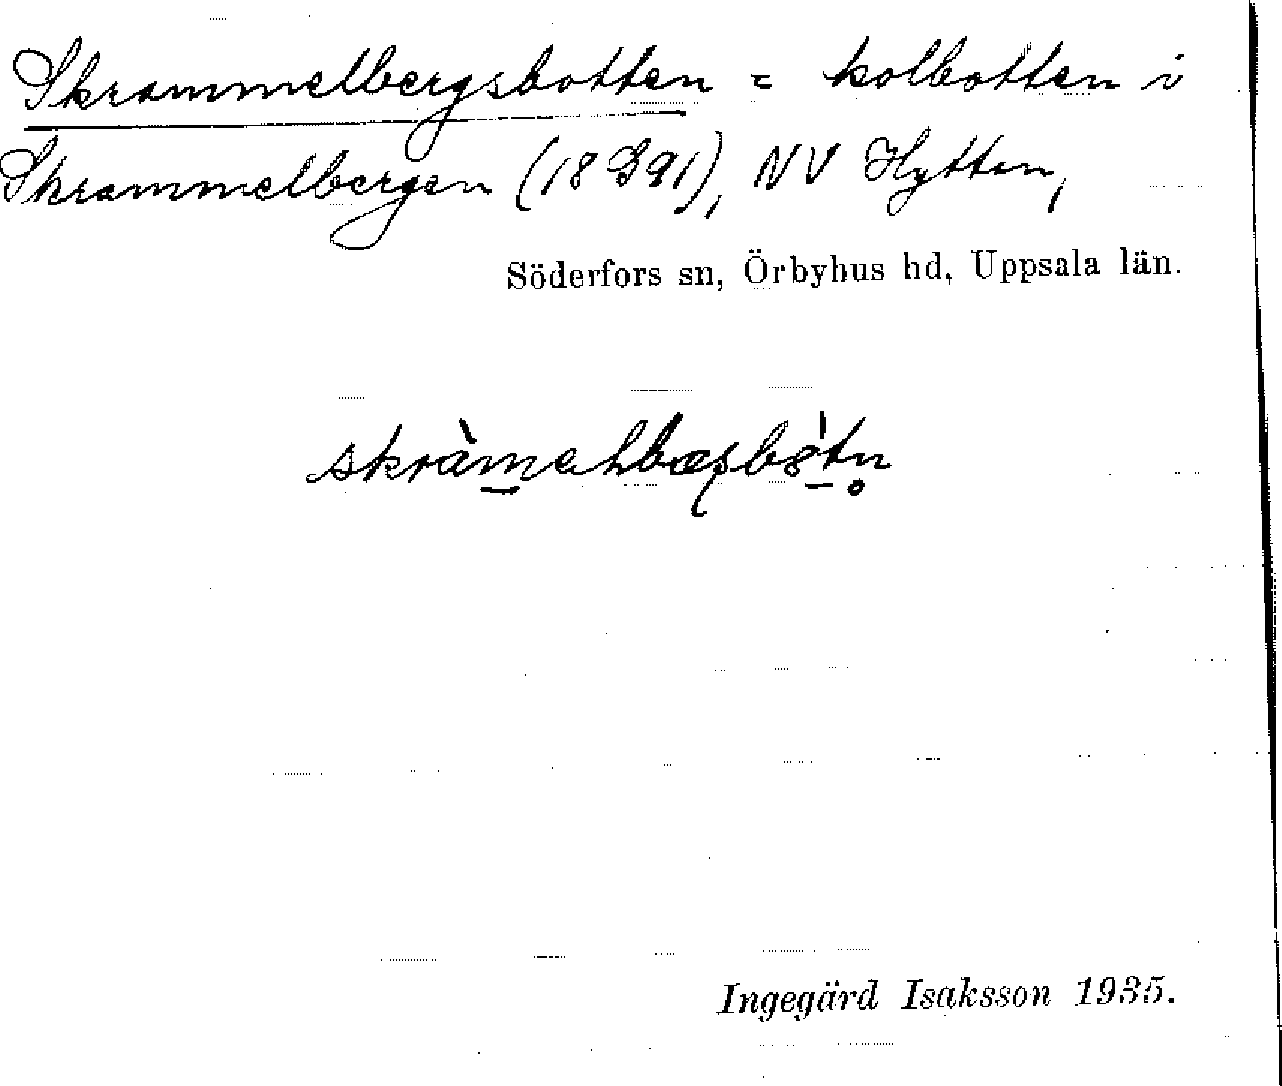 Skrammelbergsbotten = kolbotten i
Skrammelbergen (18 B 91), NV Hyttan,
Söderfors sn, Örbyhus hd, Uppsala län.
Ingegärd Isaksson 1935.